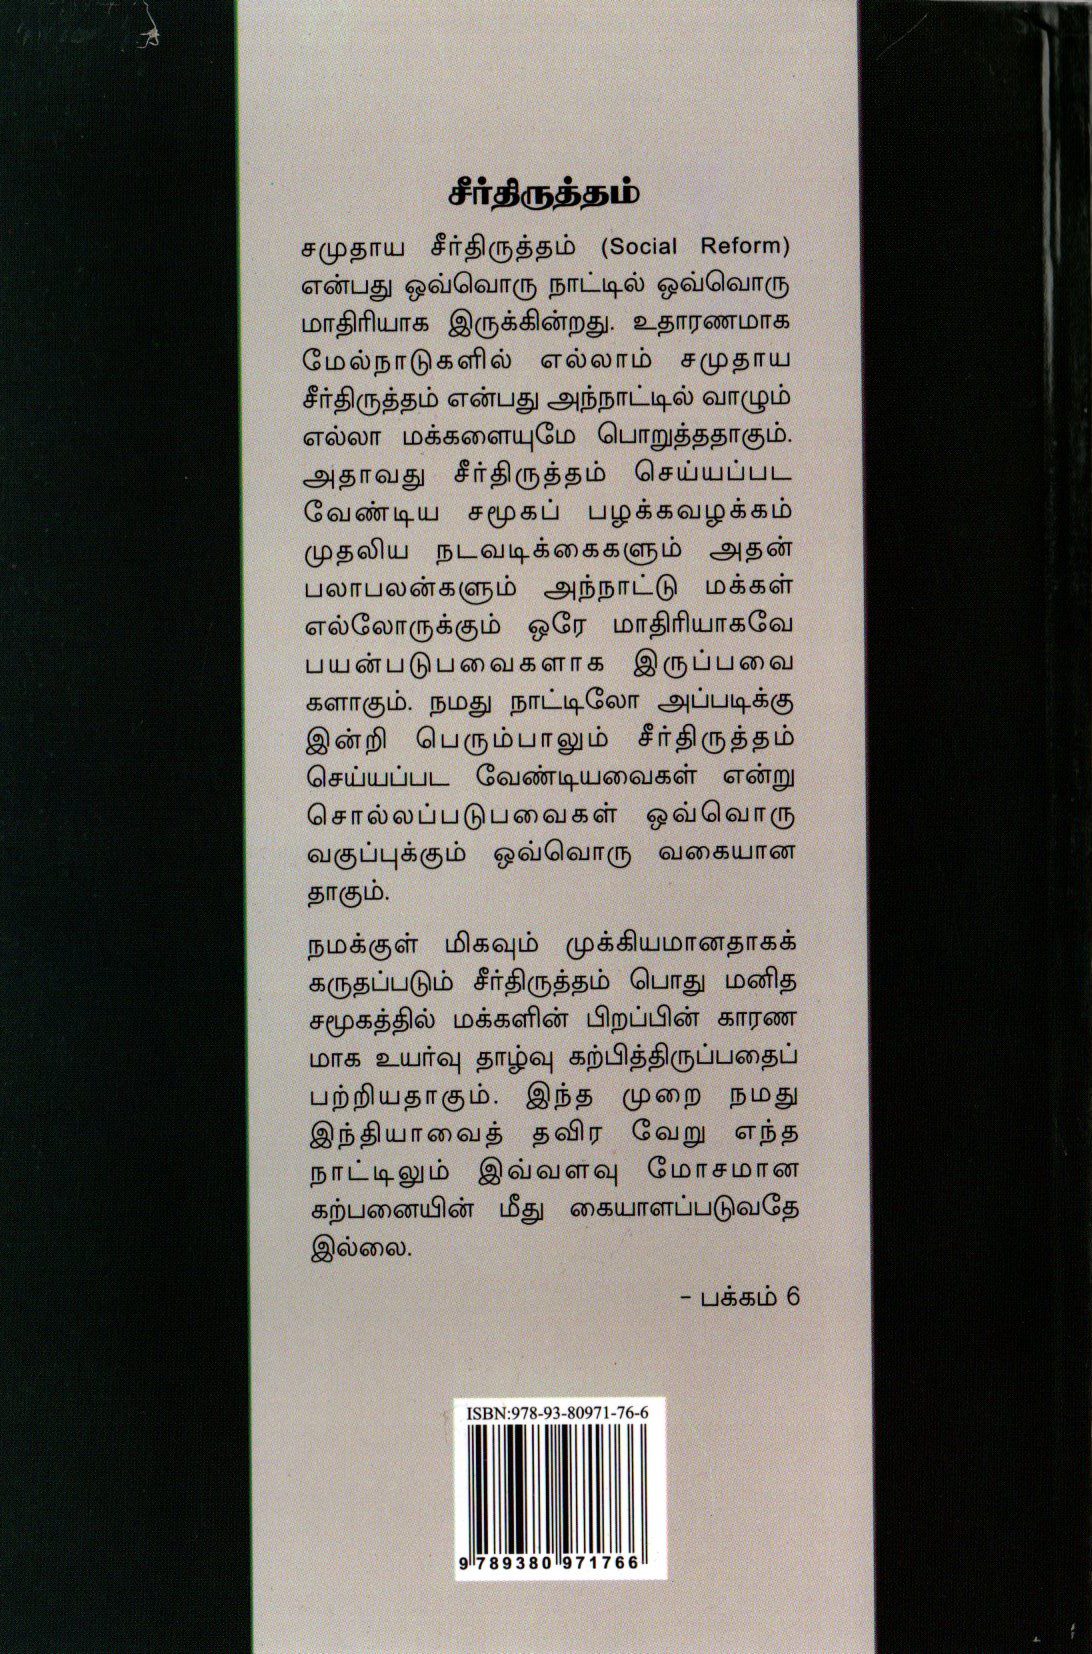 சீர்திருத்தம்
சமுதாய சீர்திருத்தம் (Social Reform)
என்பது ஒவ்வொரு நாட்டில் ஒவ்வொரு
மாதிரியாக இருக்கின்றது. உதாரணமாக
மேல்நாடுகளில் எல்லாம் சமுதாய
சீர்திருத்தம் என்பது அந்நாட்டில் வாழும்
எல்லா மக்களையுமே பொறுத்ததாகும்.
அதாவது சீர்திருத்தம் செய்யப்பட
வேண்டிய சமூகப் பழக்கவழக்கம்
முதலிய நடவடிக்கைகளும் அதன்
பலாபலன்களும் அந்நாட்டு மக்கள்
எல்லோருக்கும் ஒரே மாதிரியாகவே
பயன்படுபவைகளாக இருப்பவை
களாகும். நமது நாட்டிலோ அப்படிக்கு
இன்றி பெரும்பாலும் சீர்திருத்தம்
செய்யப்பட வேண்டியவைகள் என்று
சொல்லப்படுபவைகள் ஒவ்வொரு
வகுப்புக்கும் ஒவ்வொரு வகையான
தாகும்.
நமக்குள் மிகவும் முக்கியமானதாகக்
கருதப்படும் சீர்திருத்தம் பொது மனித
சமூகத்தில் மக்களின் பிறப்பின் காரண
மாக உயர்வு தாழ்வு கற்பித்திருப்பதைப்
பற்றியதாகும். இந்த முறை நமது
இந்தியாவைத் தவிர வேறு எந்த
நாட்டிலும் இவ்வளவு மோசமான
கற்பனையின் மீது கையாளப்படுவதே
இல்லை.
– பக்கம் 6
ISBN:978-93-80971-76-6
9 789380 971766